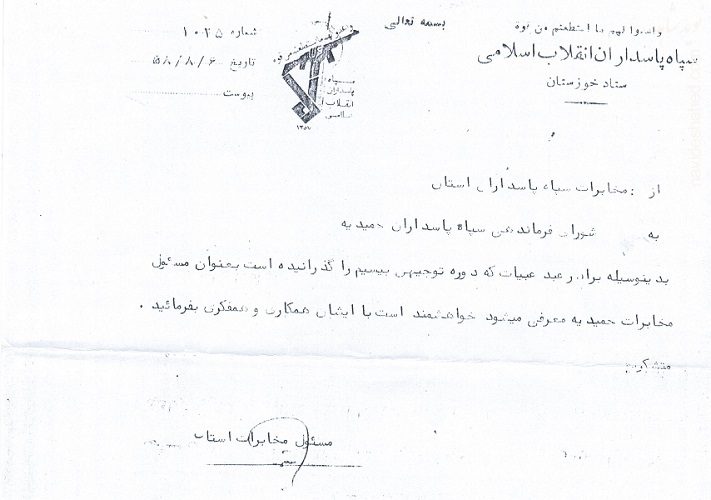 بسمه تعالی
واعدوا لهم ما استطعتم من قوة
سپاه پاسداران انقلاب اسلامی
ستاد خوزستان
سپاه
پاسداران
انقلاب
اسلامی
۱۳۵۷
شماره ۱۰۲۵
تاریخ ۵۸/۸/۶
پیوست
از : مخابرات سپاه پاسداران استان
به شورای فرماندهی سپاه پاسداران حمیدیه
بدینوسیله برادر عبد عبیات که دوره توجیهی بیسیم را گذرانیده است بعنوان مسئول
مخابرات حمیدیه معرفی میشود خواهشمند است با ایشان همکاری و همفکری بفرمائید .
متشکریم
مسئول مخابرات استان